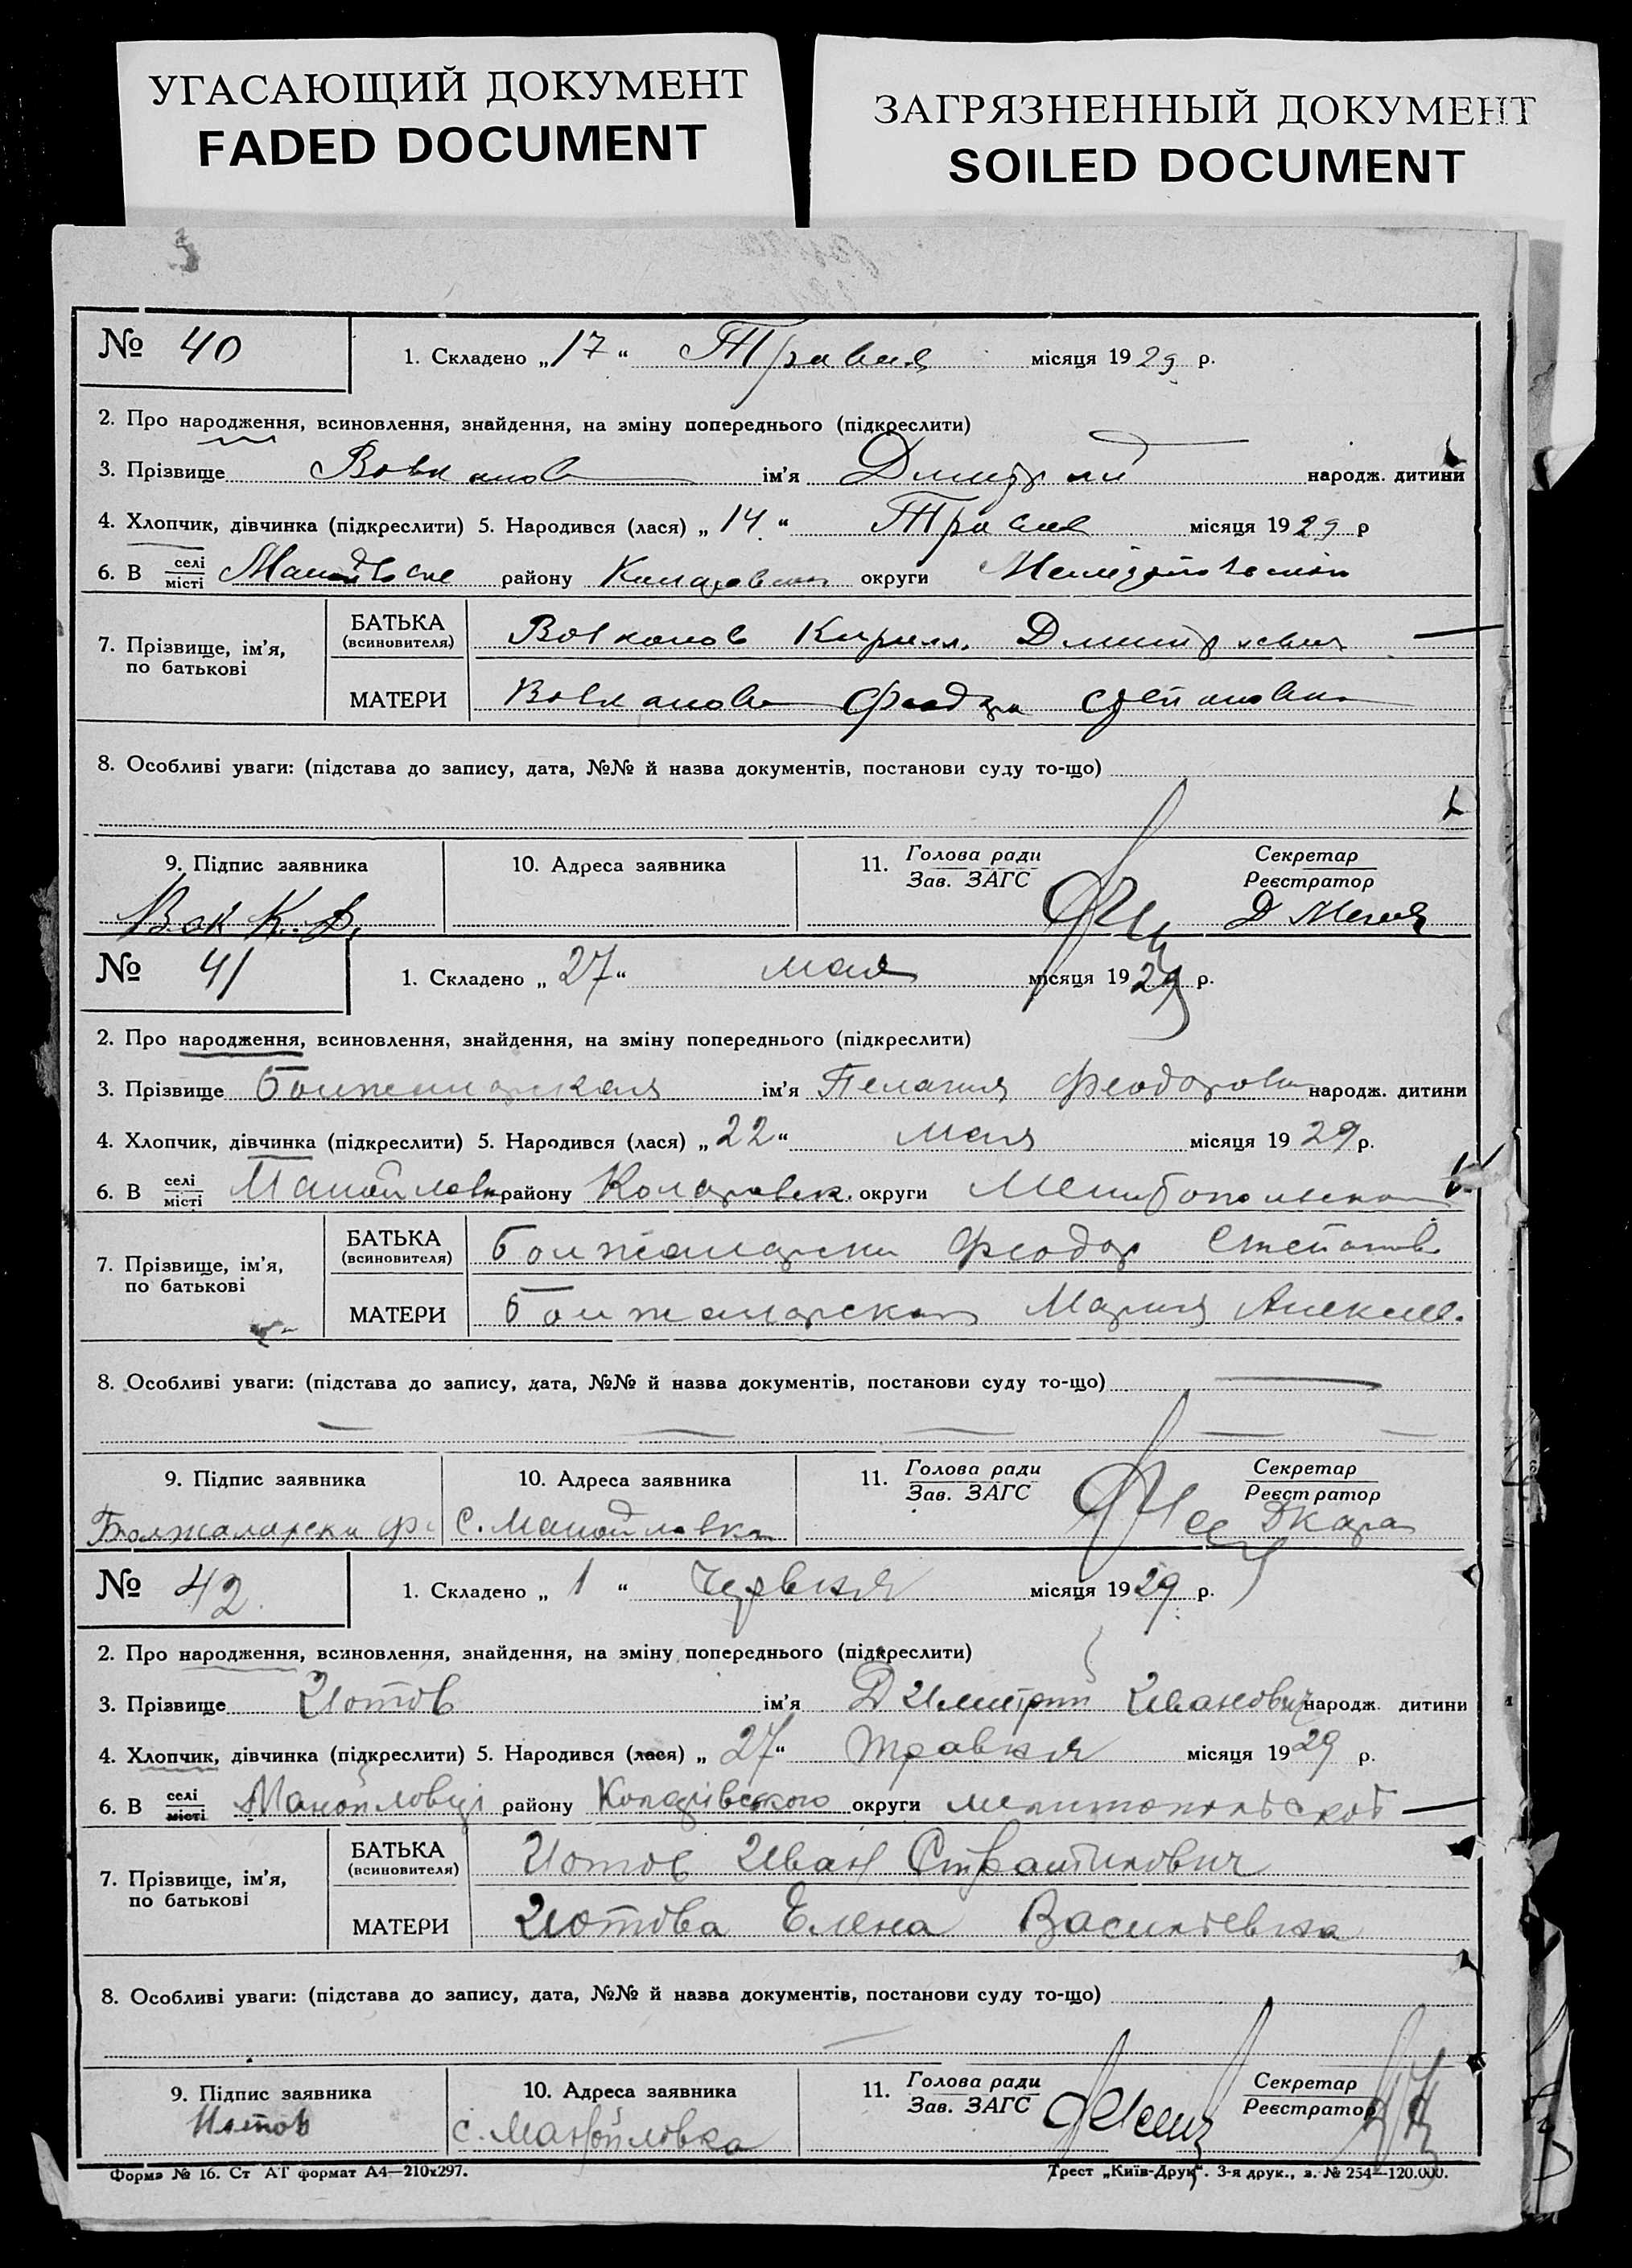 УГАСАЮЩИЙ ДОКУМЕНТ
FADED DOCUMENT
ЗАГРЯЗНЕННЫЙ ДОКУМЕНТ
SOILED DOCUMENT
№ 40
1. Складено „17“ Травня місяця 1929 р.
2. Про народження, всиновлення, знайдення, на зміну попереднього (підкреслити)
3. Прізвище Волканов ім'я Дмитрий народж. дитини
4. Хлопчик, дівчинка (підкреслити) 5. Народився (лася) „14“ Травня місяця 1929 р
6. В селі/місті району округи
7. Прізвище, ім'я, по батькові
БАТЬКА (всиновителя) Волканов Кирилл Дмитриевич
МАТЕРИ Волканова Феодора Степановна
8. Особливі уваги: (підстава до запису, дата, №№ й назва документів, постанови суду то-що)
9. Підпис заявника
10. Адреса заявника
11. Голова ради / Зав. ЗАГС
Секретар / Реєстратор
№ 41
1. Складено „27“ мая місяця 1929 р.
2. Про народження, всиновлення, знайдення, на зміну попереднього (підкреслити)
3. Прізвище ім'я Пелагия Феодоровн народж. дитини
4. Хлопчик, дівчинка (підкреслити) 5. Народився (лася) „22“ мая місяця 1929 р.
6. В селі/місті Манойловк району Коларовск. округи
7. Прізвище, ім'я, по батькові
БАТЬКА (всиновителя) Болжаларски Феодор Степанов.
МАТЕРИ Болжаларская Мария Алексее.
8. Особливі уваги: (підстава до запису, дата, №№ й назва документів, постанови суду то-що)
9. Підпис заявника
10. Адреса заявника
11. Голова ради / Зав. ЗАГС
Секретар / Реєстратор
Болжаларски Ф
с. Манойловка
ДКара
№ 42.
1. Складено „1“ Червня місяця 1929 р.
2. Про народження, всиновлення, знайдення, на зміну попереднього (підкреслити)
3. Прізвище Иотов ім'я Димитрий Иванович народж. дитини
4. Хлопчик, дівчинка (підкреслити) 5. Народився (лася) „27“ травня місяця 1929 р.
6. В селі/місті Манойловці району Коларівського округи мелитопольской
7. Прізвище, ім'я, по батькові
БАТЬКА (всиновителя) Иотов Иван
МАТЕРИ Иотова Елена Васильевна
8. Особливі уваги: (підстава до запису, дата, №№ й назва документів, постанови суду то-що)
9. Підпис заявника
10. Адреса заявника
11. Голова ради / Зав. ЗАГС
Секретар / Реєстратор
Иотов
с. Манойловка
Форма № 16. Ст АТ формат А4—210x297.
Трест „Київ-Друк“. 3-я друк., з. № 254—120.000.